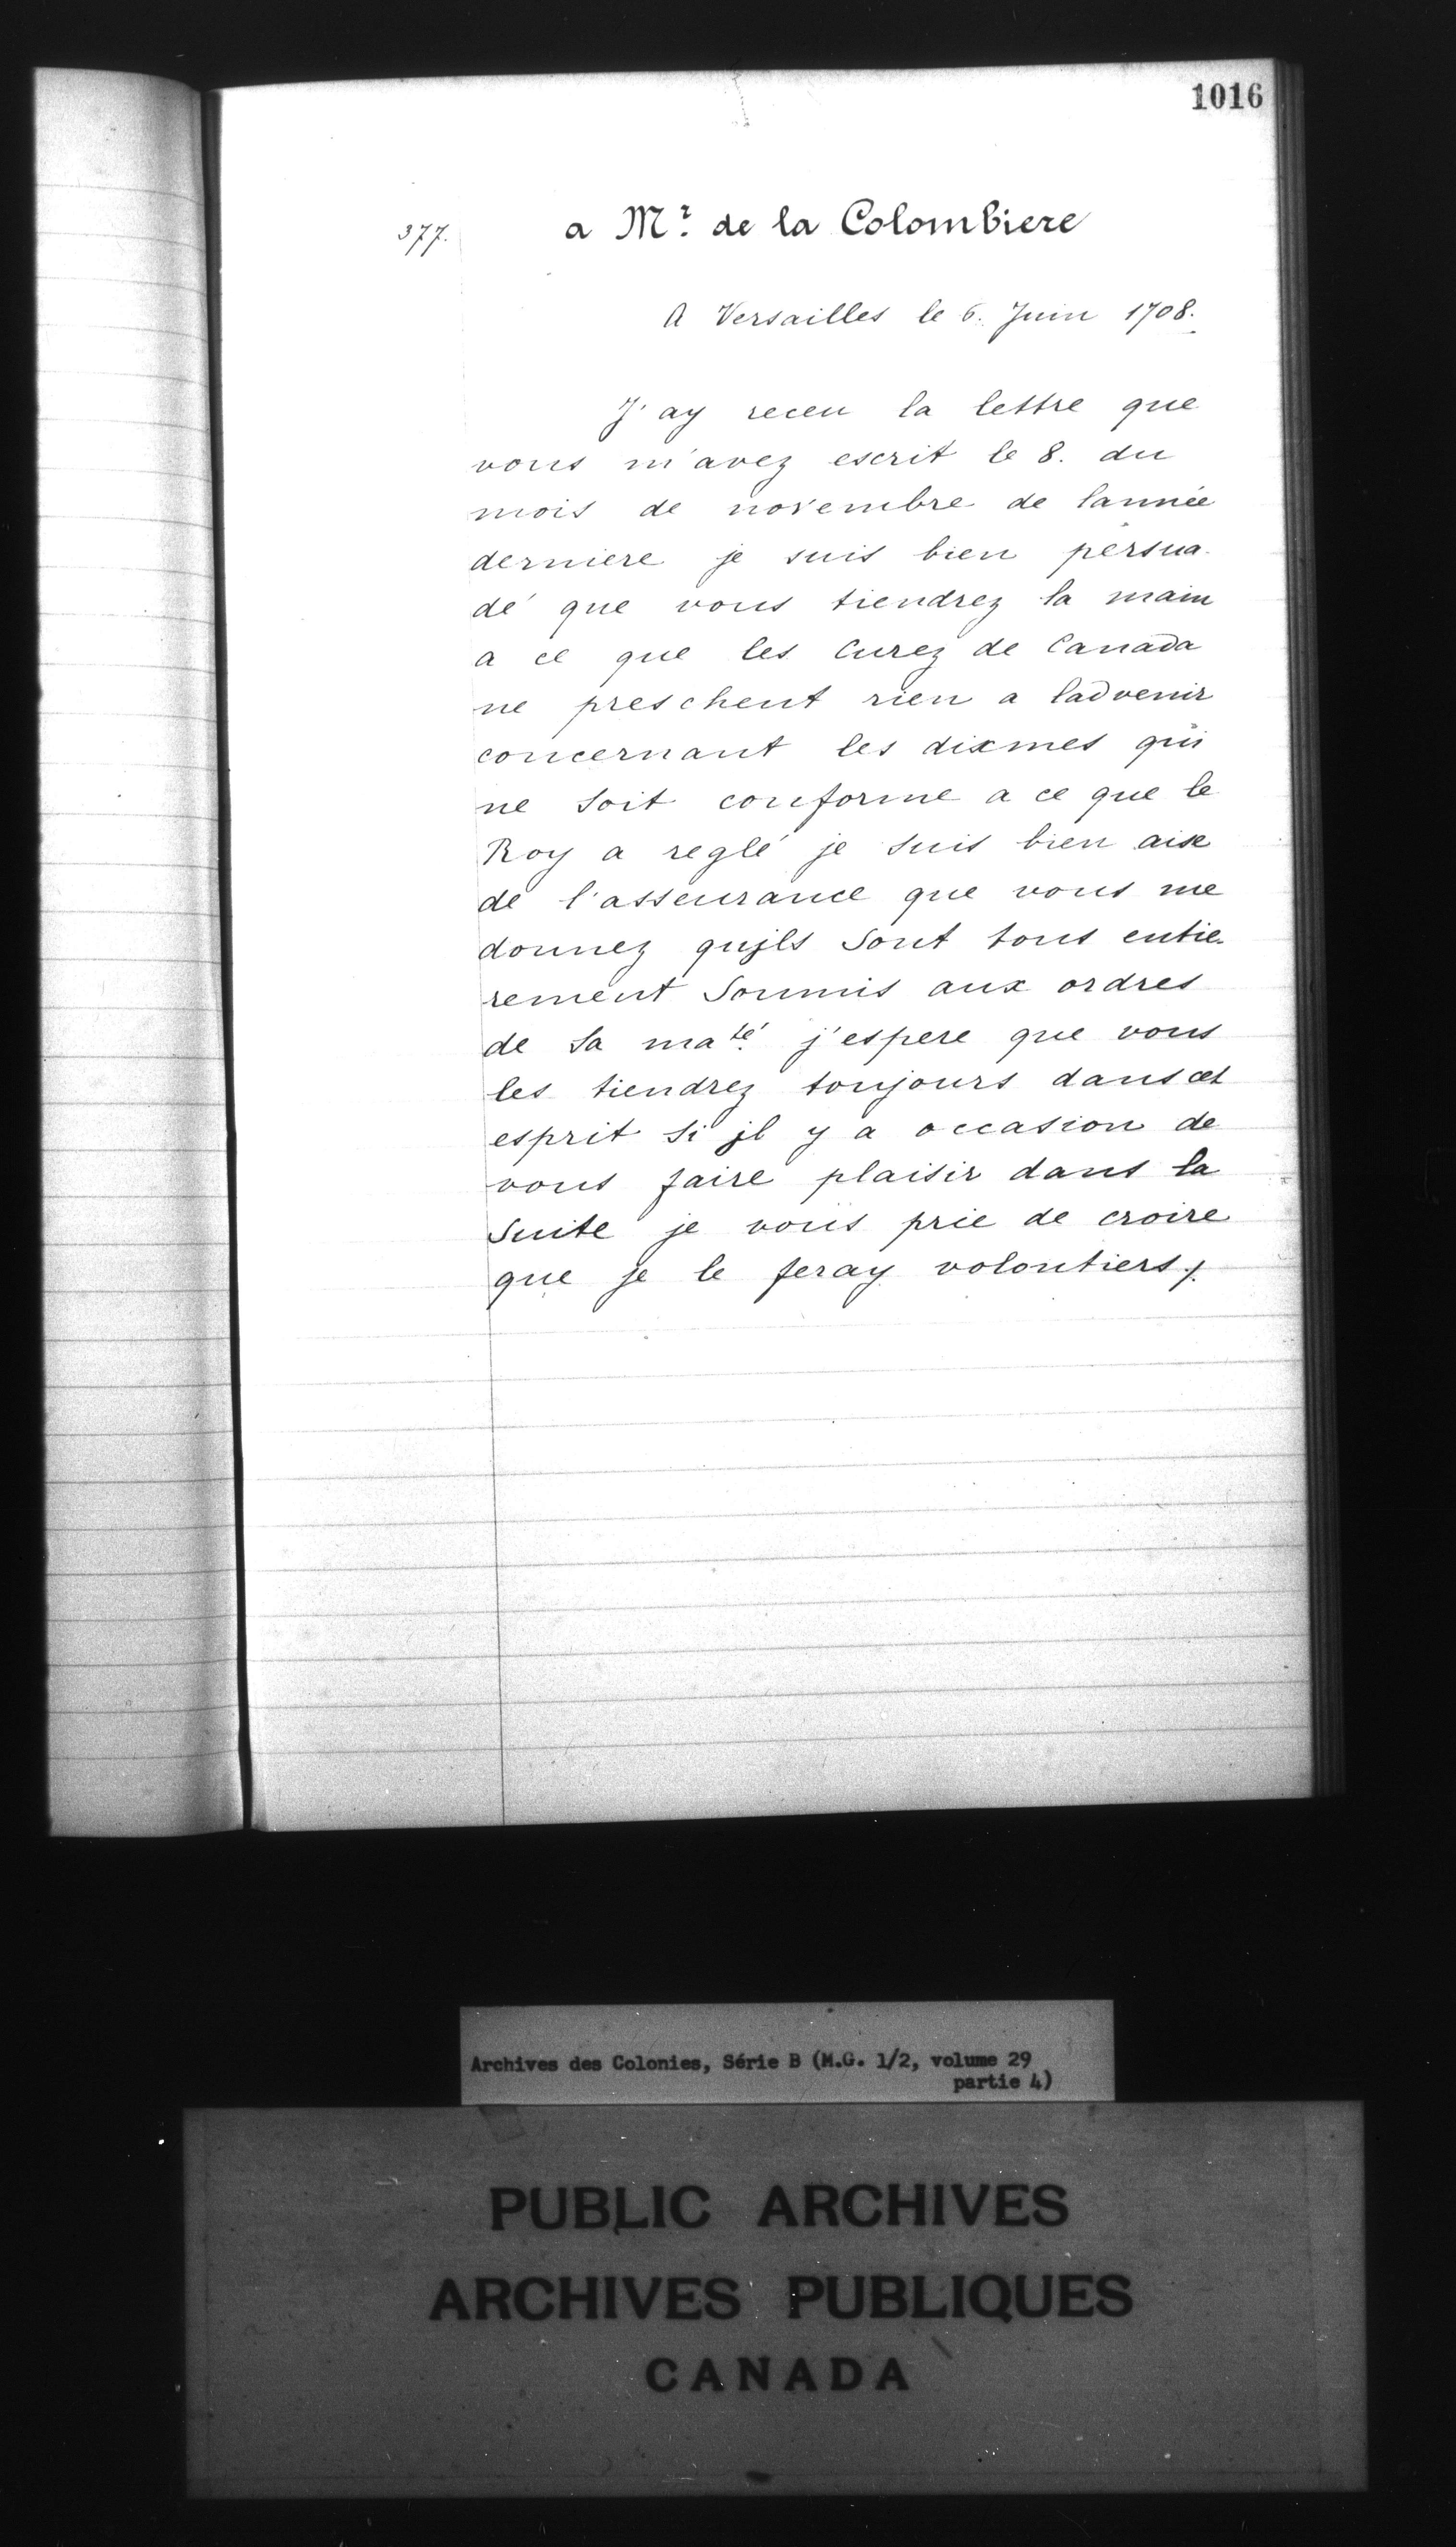 1016
377.
a Mr. de la Colombiere
A Versailles le 6. Juin 1708.
J'ay receu la lettre que
vous m'avez escrit le 8. du
mois de novembre de lannée
derniere je suis bien persua-
dé que vous tiendrez la main
a ce que les Curez de Canada
ne preschent rien a ladvenir
concernant les dixmes qui
ne soit conforme a ce que le
Roy a reglé je suis bien aise
de l'asseurance que vous me
donnez qujls sont tous entie-
rement soumis aux ordres
de sa maté. j'espere que vous
les tiendrez toujours dans cet
esprit si jl y a occasion de
vous faire plaisir dans la
suite je vous prie de croire
que je le feray volontiers ./.
Archives des Colonies, Série B (M.G. 1/2, volume 29
partie 4)
PUBLIC ARCHIVES
ARCHIVES PUBLIQUES
CANADA